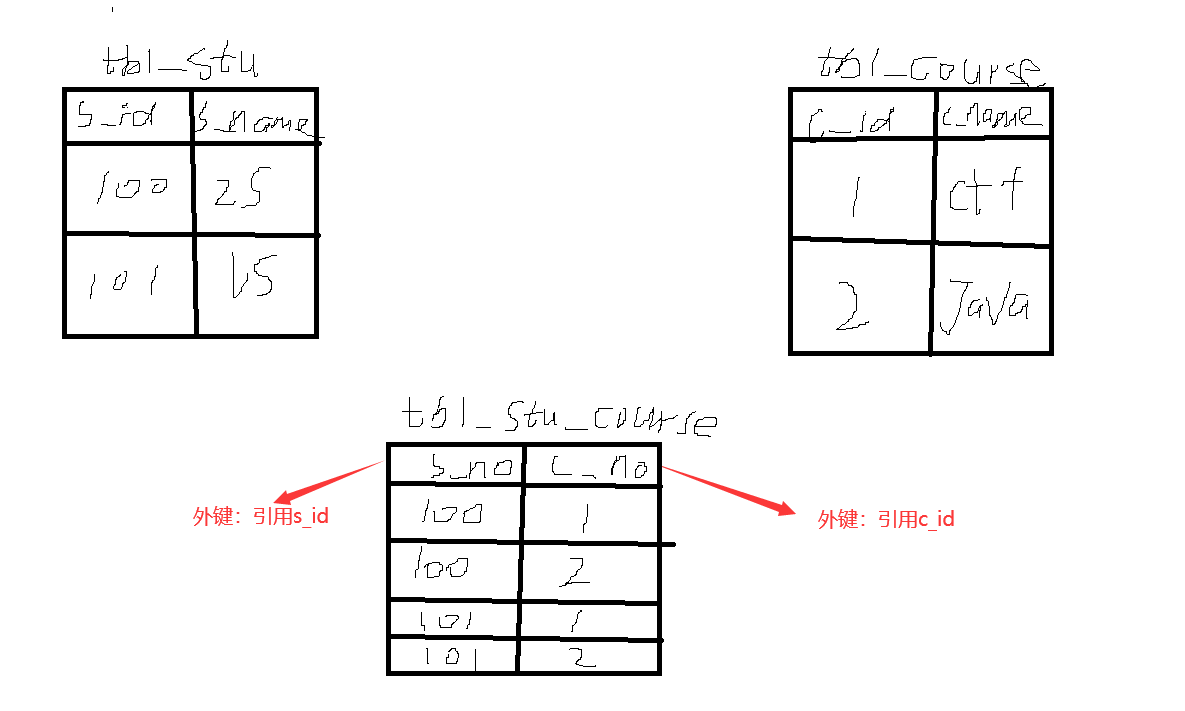 tbl_stu
s_id s_name
100 zs
101 ls
tbl_course
c_id c_name
1 c++
2 Java
tbl_stu_course
s_no c_no
100 1
100 2
101 1
101 2
外键：引用s_id
外键：引用c_id